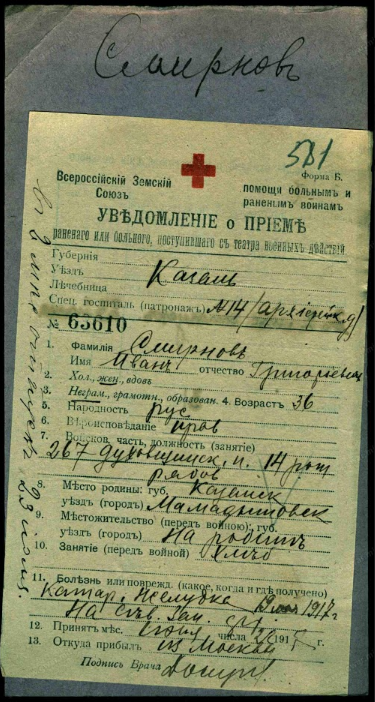 Смирновъ
581
Форма Б.
Всероссійскій Земскій
Союзъ
помощи больнымъ и
раненымъ воинамъ
УВѢДОМЛЕНІЕ о ПРІЕМѢ
раненаго или больного, поступившаго съ театра военныхъ дѣйствій
Губернія
Уѣздъ Казань
Лѣчебница
Спец. госпиталь (патронажъ) №14
№ 63610
1. Фамилія Смирновъ
Имя Иванъ отчество Григорьевич
2. Хол., жен., вдовъ
3. Неграм., грамотн., образован. 4. Возрастъ 36
5. Народность рус
6. Вѣроисповѣданіе прав
7. Войсков. часть, должность (занятіе)
267 духовщинск. п. 14 рот
рядов
8. Мѣсто родины: губ. Казанск
уѣздъ (городъ) Мамадышевск
9. Мѣстожительство (передъ войною): губ.
уѣздъ (городъ) На родинѣ
10. Занятіе (передъ войной) хлѣб
11. Болѣзнь или поврежд. (какое, когда и гдѣ получено)
Катар. желудка 1917 г
На Сѣв. Зап.
12. Принятъ мѣс. числа 191 г.
13. Откуда прибылъ из Москвы
Подпись Врача